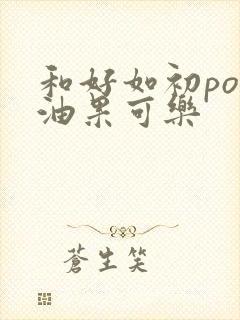 和好如初po
油果可樂
蒼生笑